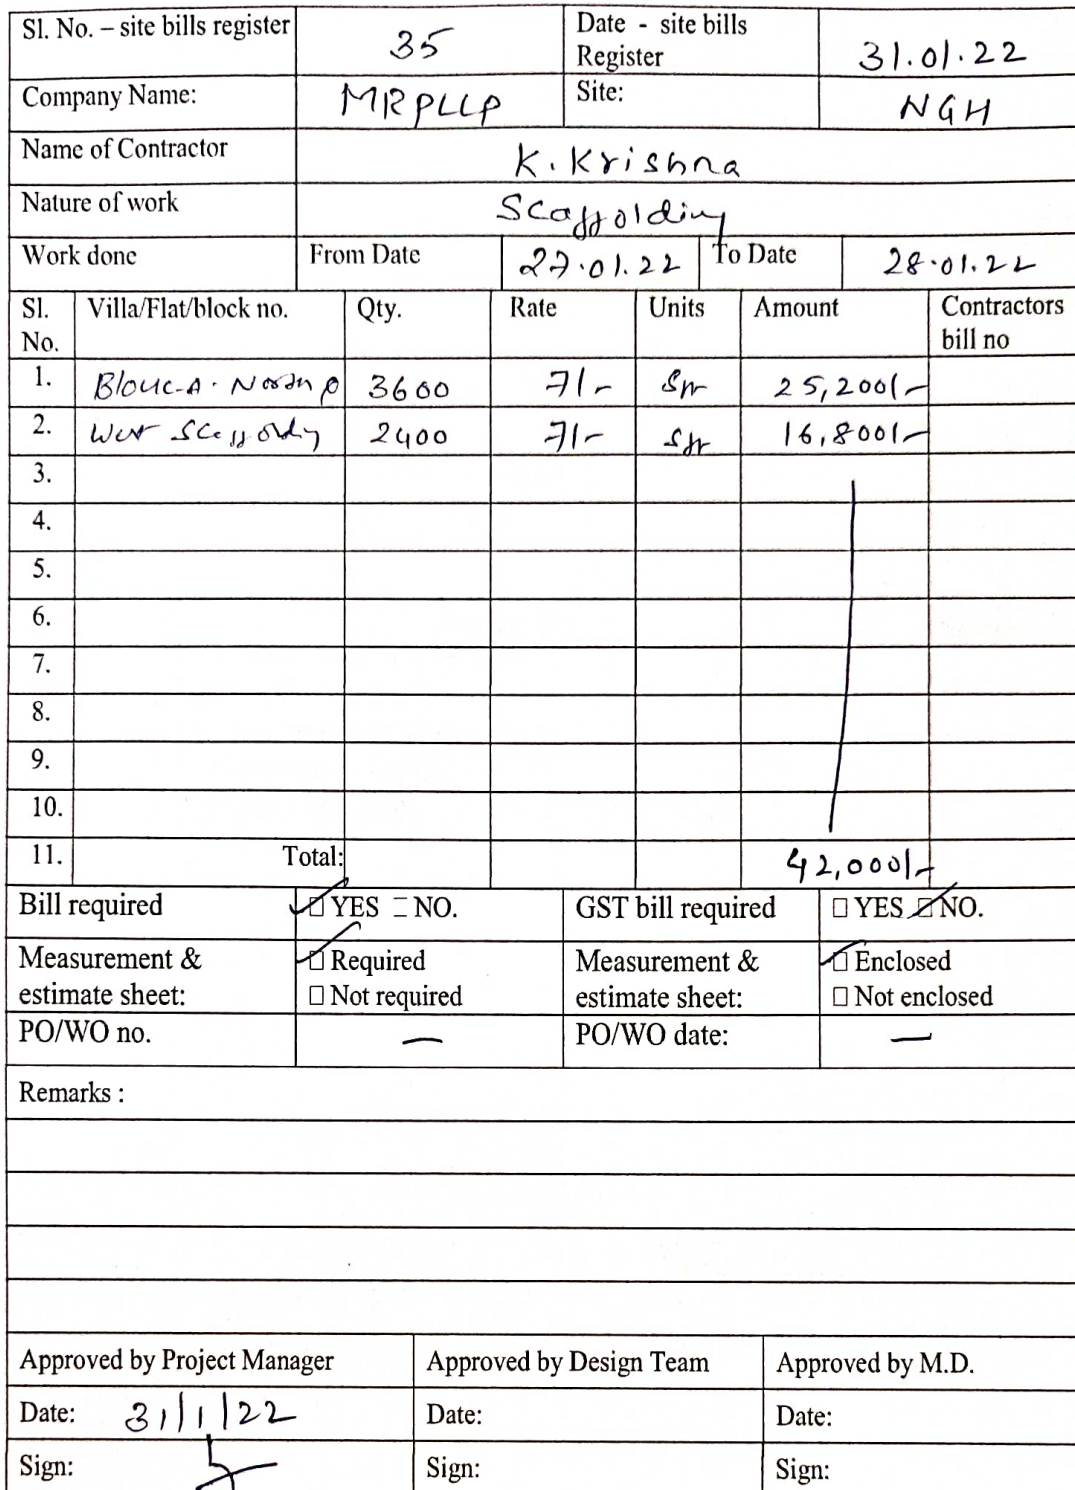 Sl. No. – site bills register 35 Date - site bills Register 31.01.22
Company Name: MRPLLP Site: NGH
Name of Contractor K. Krishna
Nature of work Scaffolding
Work done From Date 27.01.22 To Date 28.01.22
Sl. No. Villa/Flat/block no. Qty. Rate Units Amount Contractors bill no
1. Block-A. North 3600 7/- Sft 25,200/-
2. West Scaffolding 2400 7/- Sft 16,800/-
3.
4.
5.
6.
7.
8.
9.
10.
11. Total: 42,000/-
Bill required ☑ YES □ NO. GST bill required □ YES ☑ NO.
Measurement & estimate sheet: ☑ Required □ Not required Measurement & estimate sheet: ☑ Enclosed □ Not enclosed
PO/WO no. — PO/WO date: —
Remarks :
Approved by Project Manager Approved by Design Team Approved by M.D.
Date: 31/1/22 Date: Date:
Sign: Sign: Sign: